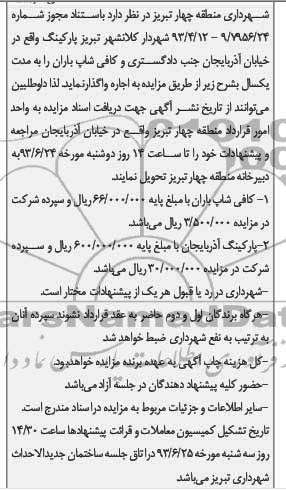 شـــهرداری منطقه چهار تبریز در نظر دارد باستـناد مجوز شـماره
۹/۷۹۵۶/۲۴ – ۹۳/۴/۱۲ شهردار کلانشهر تبریز پارکینگ واقع در
خیابان آذربایجان جنب دادگستـری و کافی شاپ باران را به مدت
یکسال بشرح زیر از طریق مزایده به اجاره واگذارنماید. لذا داوطلبین
می‌توانند از تاریخ نشـر آگهی جهت دریافت اسناد مزایده به واحد
امور قرارداد منطقه چهار تبریز واقـع در خیابان آذربایجان مراجعه
و پیشنهادات خود را تا ساعت ۱۴ روز دوشنبه مورخه ۹۳/۶/۲۴به
دبیرخانه منطقه چهار تبریز تحویل نمایند.
۱- کافی شاپ باران با مبلغ پایه ۶۶/۰۰۰/۰۰۰ریال و سپرده شرکت
در مزایده ۳/۵۰۰/۰۰۰ ریال می‌باشد.
۲-پارکینگ آذربایجان با مبلغ پایه ۶۰۰/۰۰۰/۰۰۰ ریال و سـپرده
شرکت در مزایده ۳۰/۰۰۰/۰۰۰ ریال می‌باشد.
-شهرداری در رد یا قبول هر یک از پیشنهادات مختار است.
-هرگاه برندگان اول و دوم حاضر به عقد قرارداد نشوند سپرده آنان
به ترتیب به نفع شهرداری ضبط خواهد شد
-کل هزینه چاپ آگهی به عهده برنده مزایده خواهدبود.
-حضور کلیه پیشنهاد دهندگان در جلسه آزاد می‌باشد.
-سایر اطلاعات و جزئیات مربوط به مزایده در اسناد مندرج است.
تاریخ تشکیل کمیسیون معاملات و قرائت پیشنهادها ساعت ۱۴/۳۰
روز سه شنبه مورخه ۹۳/۶/۲۵ در اتاق جلسه ساختمان جدیدالاحداث
شهرداری تبریز می‌باشد